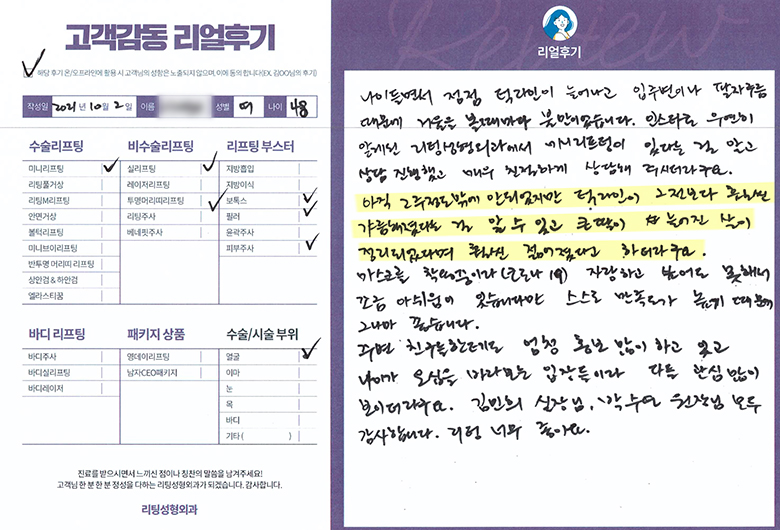 고객감동 리얼후기
해당 후기 온/오프라인에 활용 시 고객님의 성함은 노출되지 않으며, 이에 동의 합니다(EX. 김OO님의 후기)
작성일 2021년 10월 2일 이름 성별 여 나이 48
수술리프팅 비수술리프팅 리프팅 부스터
미니리프팅 실리프팅 지방흡입
리팅풀거상 레이저리프팅 지방이식
리팅M리프팅 투명머리띠리프팅 보톡스
안면거상 리팅주사 필러
볼턱리프팅 베네핏주사 윤곽주사
미니브이리프팅 피부주사
반투명 머리띠 리프팅
상안검 & 하안검
엘라스티꿈
바디 리프팅 패키지 상품 수술/시술 부위
바디주사 영데이리프팅 얼굴
바디실리프팅 남자CEO패키지 이마
바디레이저 눈
목
바디
기타 ( )
진료를 받으시면서 느끼신 점이나 칭찬의 말씀을 남겨주세요!
고객님 한 분 한 분 정성을 다하는 리팅성형외과가 되겠습니다. 감사합니다.
리팅성형외과
Review
리얼후기
나이들면서 점점 턱라인이 늘어나고 입주변이나 팔자주름
때문에 거울을 볼때마다 불만이었습니다. 인스타로 우연히
알게된 리팅성형외과에서 미니리프팅이 있다는 걸 알고
상담 진행했고 매우 친절하게 상담해 주시더라구요.
아직 2주정도밖에 안되었지만 턱라인이 그전보다 훨씬
갸름해졌다는 걸 알 수 있고 큰딸이 늘어진 살이
정리되었다며 훨씬 젊어졌다고 하더라구요.
마스크를 착용중이라(코로나 19) 자랑하고 보여도 못해서
조금 아쉬움이 있습니다만 스스로 만족도가 높기 때문에
그나마 괜찮습니다.
주변 친구들한테도 엄청 홍보 많이 하고 있고
나이가 오십을 바라보는 입장들이라 다들 관심 많이
보이더라구요. 김민희 실장님, 박수연 원장님 모두
감사합니다. 리팅 너무 좋아요.